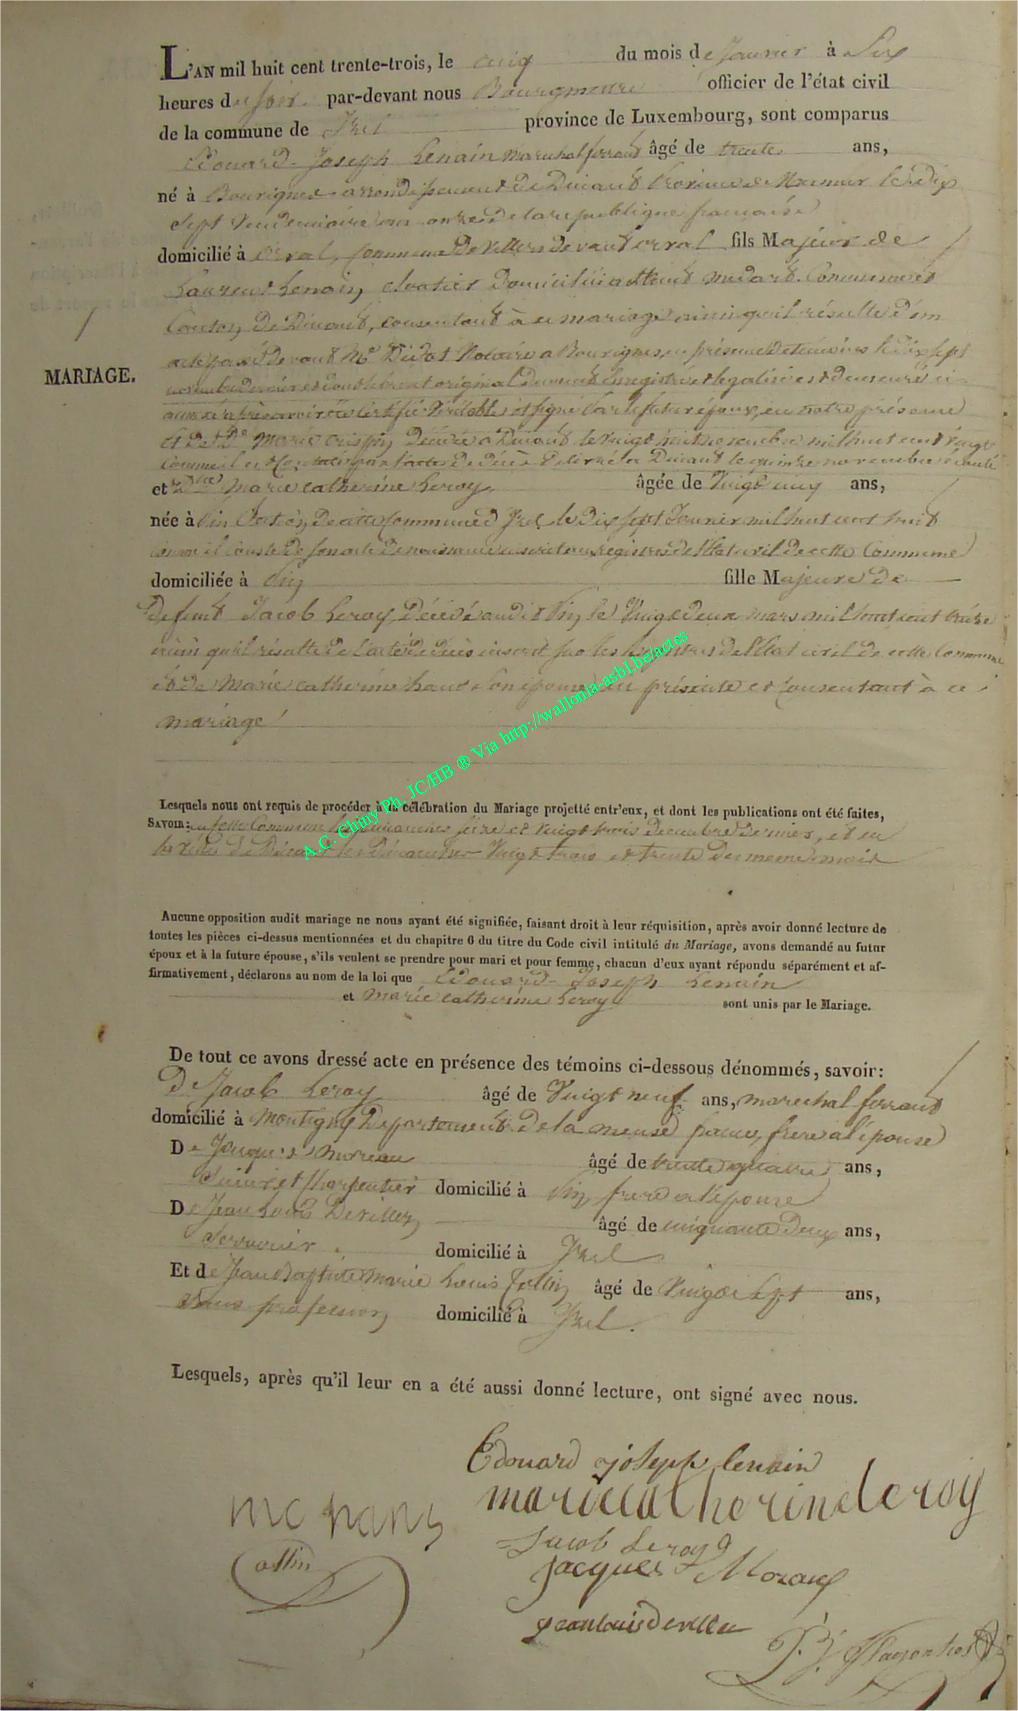 L'AN mil huit cent trente-trois, le cinq du mois de Janvier à Six
heures du soir par-devant nous Bourgmestre officier de l'état civil
de la commune de Izel province de Luxembourg, sont comparus
Edouard-Joseph Lenain marechal ferrant âgé de trente ans,
né à Bouvignes arrondissement de Dinant Province de Namur le dix
sept Vendemiaire an onze de la republique française
domicilié à Orval, Commune de Villers devant orval fils Majeur de
Laurent Lenain, domicilié à
Canton de Dinant, consentant à ce mariage ainsi qu'il résulte d'un
acte passé devant Me Notaire a Bouvignes en présence de témoins le dix sept
MARIAGE.
enregistré et legalisé est demeuré ci
annexé après avoir été certifié Véritable et signé par le futur époux, en notre présence
et de Marie crispin, Décédée à Dinant le Vingt huit novembre mil huit cent Vingt
comme il par l'acte de décès délivré à Dinant le quinze novembre écoulé
et Dlle Marie catherine Leroy âgée de Vingt cinq ans,
née à Pin de cette Commune d'Izel le dix sept Janvier mil huit cent huit
comme il conste de son acte de naissance inscrit aux registres de l'Etat civil de cette Commune
domiciliée à Pin fille Majeure de
defunt Jacob Leroy, Décédé audit Pin, le Vingt deux mars mil huit cent treize
ainsi qu'il résulte de l'acte de décès inscrit sur les registres de l'Etat civil de cette Commune
et de Marie catherine son épouse ici présente et consentant à ce
mariage
Lesquels nous ont requis de procéder à la célébration du Mariage projetté entr'eux, et dont les publications ont été faites,
SAVOIR: en cette Commune les dimanches seize et vingt trois Decembre dernier, et en
la ville de Dinant les Dimanches Vingt trois et trente du meme mois
Aucune opposition audit mariage ne nous ayant été signifiée, faisant droit à leur réquisition, après avoir donné lecture de
toutes les pièces ci-dessus mentionnées et du chapitre 6 du titre du Code civil intitulé du Mariage, avons demandé au futur
époux et à la future épouse, s'ils veulent se prendre pour mari et pour femme, chacun d'eux ayant répondu séparément et af-
firmativement, déclarons au nom de la loi que Edouard-Joseph Lenain
et Marie catherine Leroy sont unis par le Mariage.
De tout ce avons dressé acte en présence des témoins ci-dessous dénommés, savoir:
De Jacob Leroy âgé de Vingt neuf ans, marechal ferrant
domicilié à Montigny Departement de la meuse france, frere a l'épouse
De Jacques Moreau âgé de trente quatre ans,
et Charpentier domicilié à Pin frere a l'épouse
De Jean Louis Deviller, âgé de cinquante deux ans,
Serrurier domicilié à Izel
Et de Jean Baptiste Marie Louis Collin, âgé de Vingt Sept ans,
Sans profession, domicilié à Izel.
Lesquels, après qu'il leur en a été aussi donné lecture, ont signé avec nous.
Edouard joseph lenain
marie catherine leroy
mc hans
Jacob Leroy
collin
Jacques Moraux
jean louis deviller
A.C. Chiny Ph. JC/HB ® Via http://wallonia-asbl.be/actes